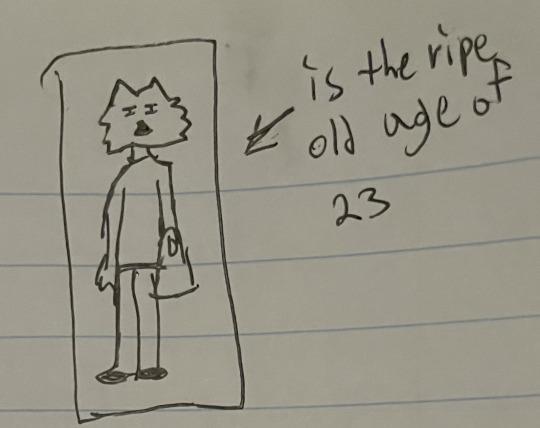 is the ripe
old age of
23